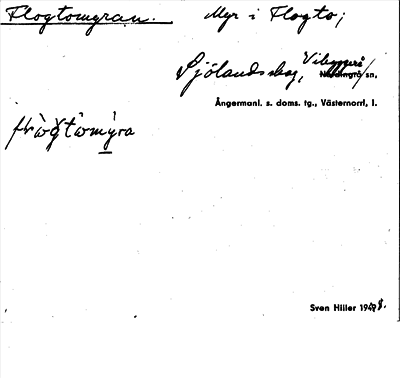 Flogtomyran. Myr i Flogto;
Sjölandsskog, Vibyggerå
Nordingrå sn,
Ångermanl. s. doms. tg., Västernorrl. l.
Sven Hiller 1948.